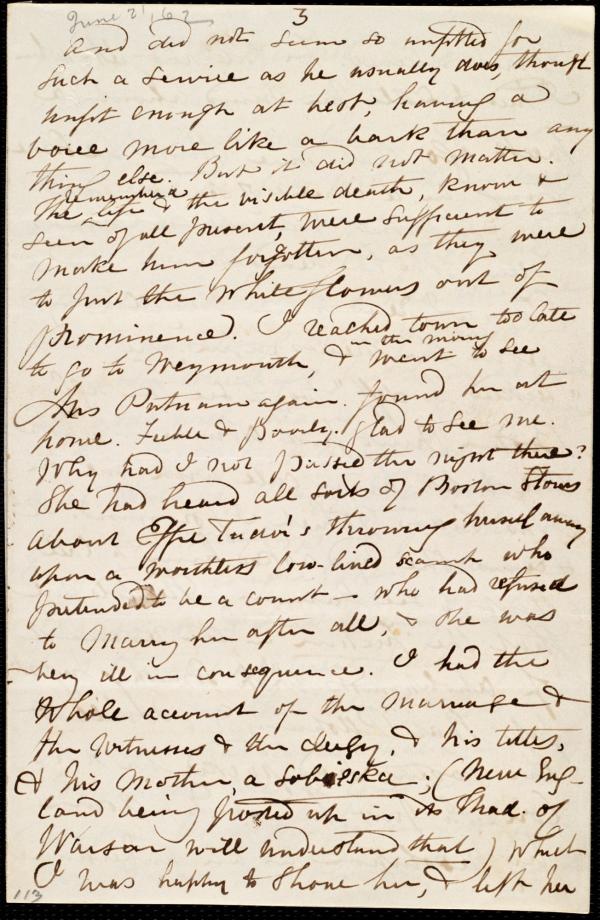 June 2, 62
3
and did not seem so unfitted for
such a service as he usually does, though
unfit enough at best, having a
voice more like a bark than any
thing else. But it did not matter.
remembered
The life & the visible death, known &
seen of all present, were sufficient to
make him forgotten, as they were
to put the white flowers out of
prominence. I reached town too late
in the morng
to go to Weymouth, & went to see
Mrs Putnam again. found her at
home. Feeble & poorly. glad to see me.
Why had I not passed the night there?
She had heard all sorts of Boston stories
about Effie Tudor's throwing herself away
upon a worthless low-lived scamp who
pretended to be a count – who had refused
to marry her after all, & she was
very ill in consequence. I had the
whole account of the marriage &
the witnesses & the clergy, & his titles,
& his mother, a Sobieska; (New Eng-
land being posted up in its Thad. of
Warsaw will understand that) which
I was happy to show her, & left her
113